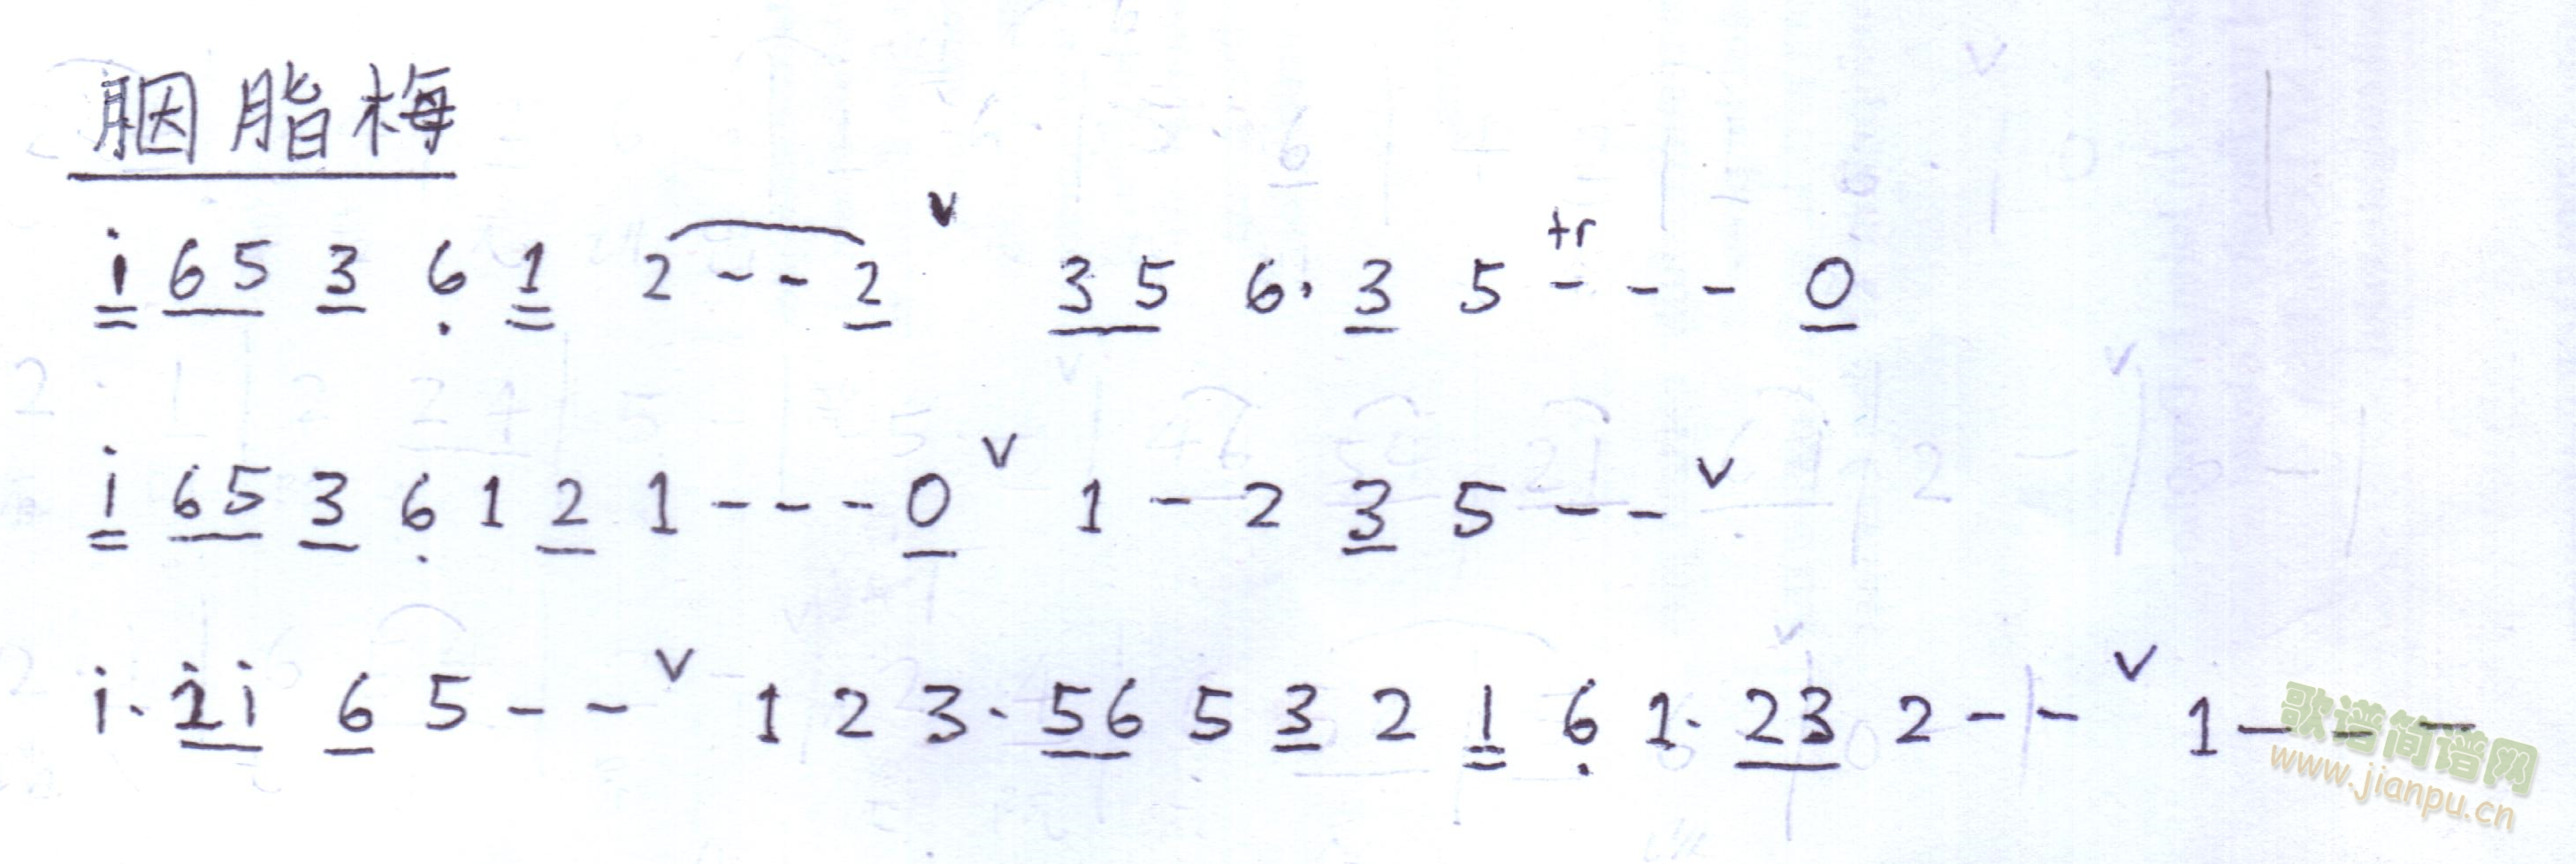 胭脂梅
v
tr
i 65 3 6 1 2--2 35 6·3 5--- 0
v v
i 65 3 6 1 2 1---0 1-2 3 5--
v v
i·2i 6 5-- 1 2 3·56 5 3 2 1 6 1·23 2-- 1---
歌谱简谱网
www.jianpu.cn